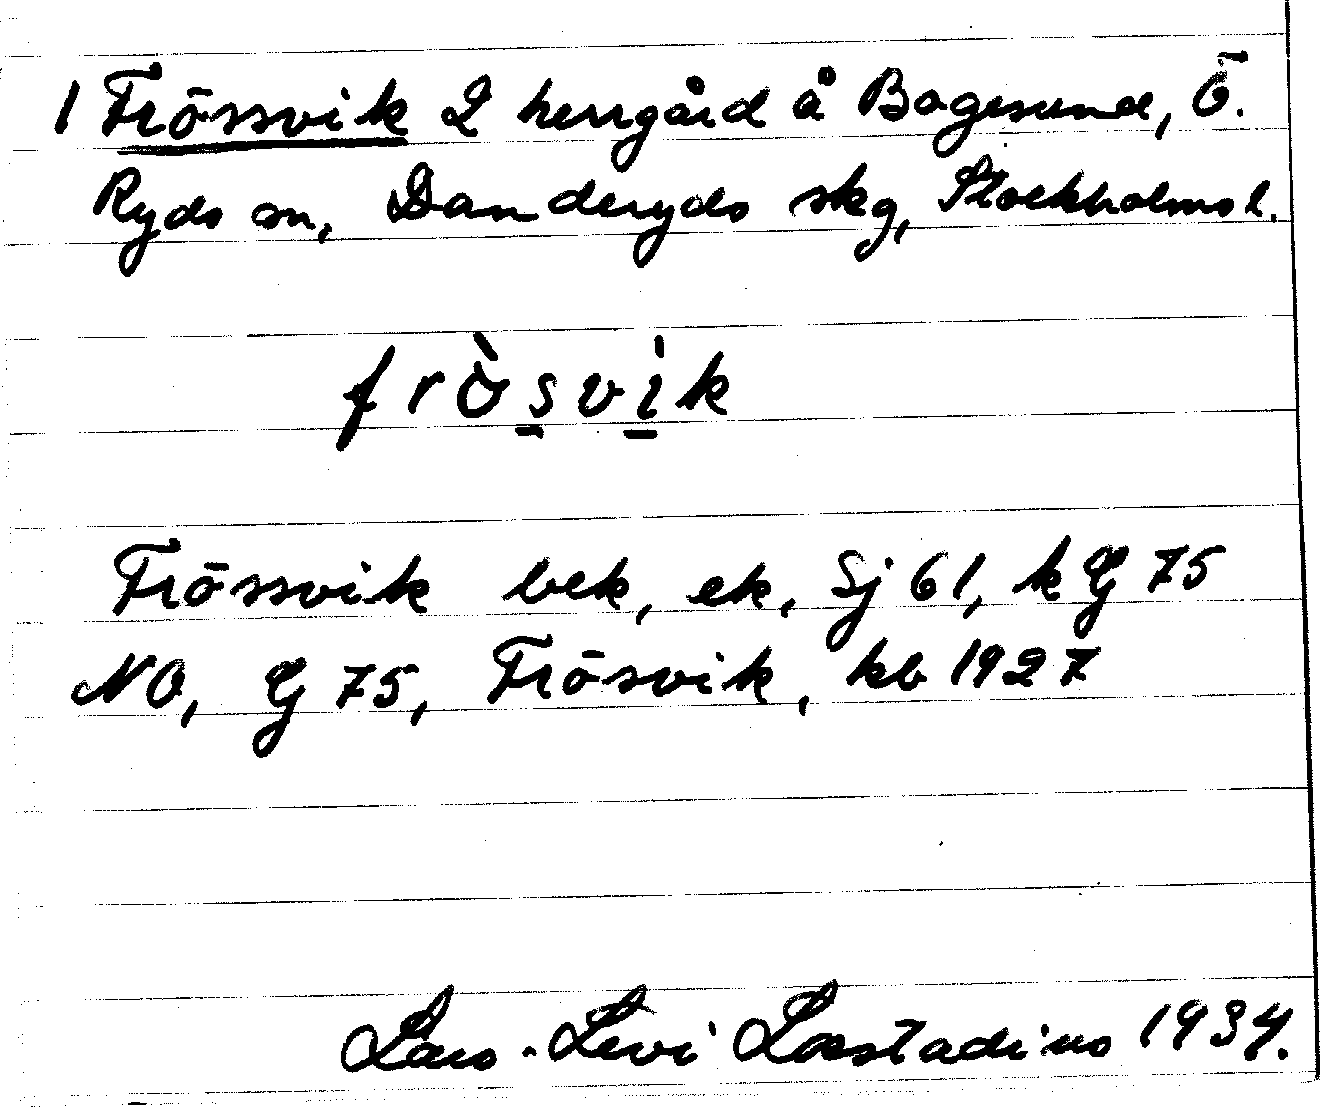 1 Frössvik 2 herrgård å Bogesund, Ö.
Ryds sn, Danderyds skg, Stockholms l.
fròsvik
Frössvik bek, ek, Sj 61, k G 75
NO, G 75, Frösvik, kb 1927
Lars-Levi Læstadius 1934.